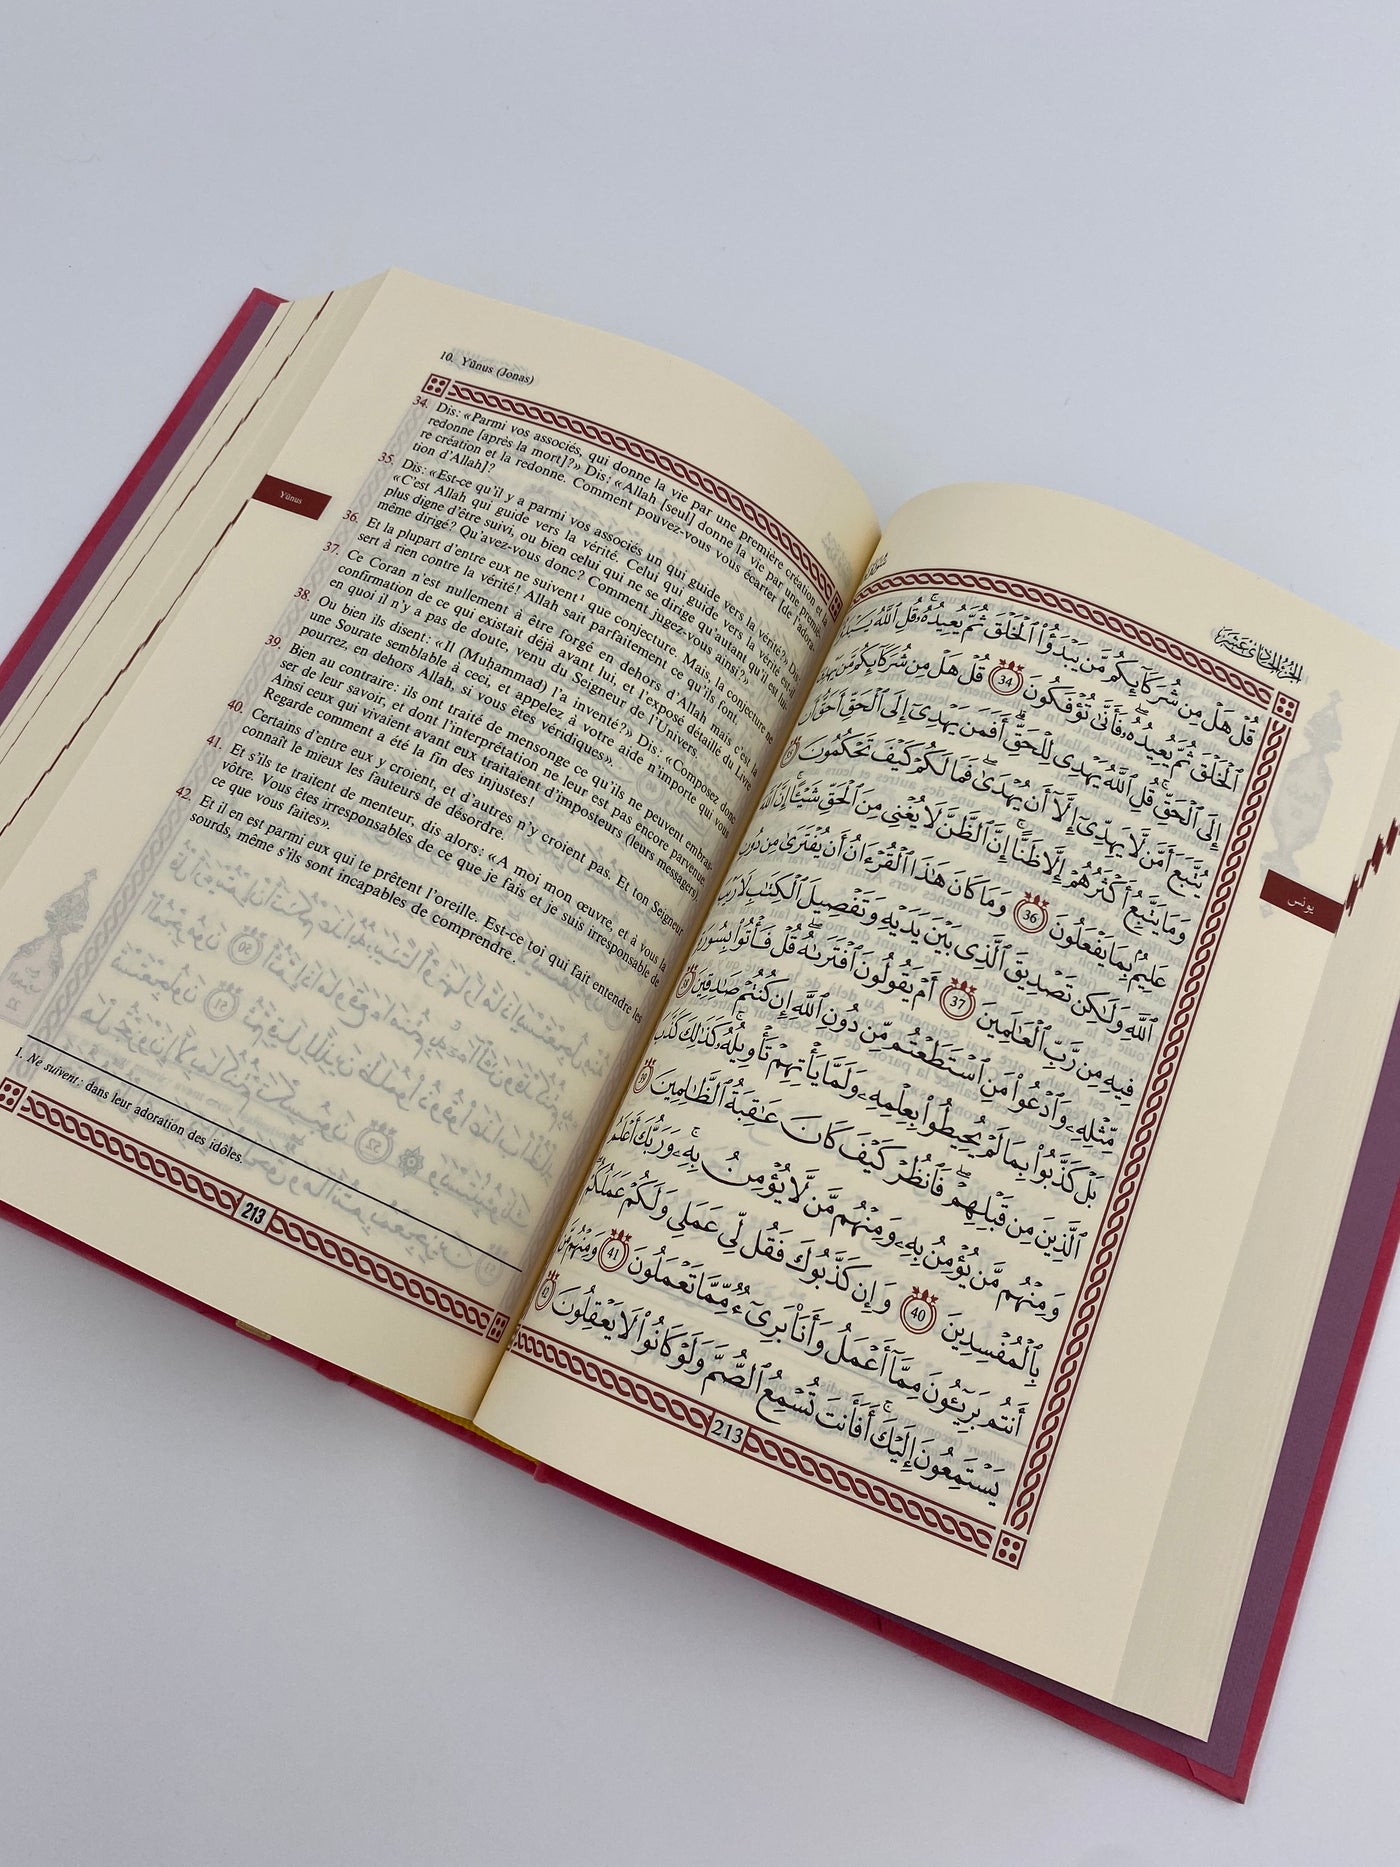 10. Yûnus (Jonas)
34. Dis: «Parmi vos associés, qui donne la vie par une première création et la
redonne [après la mort]?» Dis: «Allah [seul] donne la vie par une premiè-
re création et la redonne. Comment pouvez-vous vous écarter [de l'adora-
tion d'Allah]?
35. Dis: «Est-ce qu'il y a parmi vos associés un qui guide vers la vérité?» Dis:
«C'est Allah qui guide vers la vérité. Celui qui guide vers la vérité est-il
plus digne d'être suivi, ou bien celui qui ne se dirige qu'autant qu'il est lui-
même dirigé? Qu'avez-vous donc? Comment jugez-vous ainsi?»
36. Et la plupart d'entre eux ne suivent¹ que conjecture. Mais, la conjecture ne
sert à rien contre la vérité! Allah sait parfaitement ce qu'ils font.
37. Ce Coran n'est nullement à être forgé en dehors d'Allah mais c'est la
confirmation de ce qui existait déjà avant lui, et l'exposé détaillé du Livre
en quoi il n'y a pas de doute, venu du Seigneur de l'Univers.
38. Ou bien ils disent: «Il (Muḥammad) l'a inventé?» Dis: «Composez donc
une Sourate semblable à ceci, et appelez à votre aide n'importe qui vous
pourrez, en dehors d'Allah, si vous êtes véridiques».
39. Bien au contraire: ils ont traité de mensonge ce qu'ils ne peuvent embras-
ser de leur savoir, et dont l'interprétation ne leur est pas encore parvenue.
Ainsi ceux qui vivaient avant eux traitaient d'imposteurs (leurs messagers).
Regarde comment a été la fin des injustes!
40. Certains d'entre eux y croient, et d'autres n'y croient pas. Et ton Seigneur
connaît le mieux les fauteurs de désordre.
41. Et s'ils te traitent de menteur, dis alors: «A moi mon œuvre, et à vous la
vôtre. Vous êtes irresponsables de ce que je fais et je suis irresponsable de
ce que vous faites».
42. Et il en est parmi eux qui te prêtent l'oreille. Est-ce toi qui fait entendre les
sourds, même s'ils sont incapables de comprendre.
1. Ne suivent: dans leur adoration des idôles.
213
Yûnus
الجزء الحادي عشر
قُلْ هَلْ مِن شُرَكَآئِكُم مَّن يَبْدَؤُا۟ ٱلْخَلْقَ ثُمَّ يُعِيدُهُۥ ۚ قُلِ ٱللَّهُ
ٱلْخَلْقَ ثُمَّ يُعِيدُهُۥ ۖ فَأَنَّىٰ تُؤْفَكُونَ 34 قُلْ هَلْ مِن شُرَكَآئِكُم مَّن يَهْدِىٓ
إِلَى ٱلْحَقِّ ۚ قُلِ ٱللَّهُ يَهْدِى لِلْحَقِّ ۗ أَفَمَن يَهْدِىٓ إِلَى ٱلْحَقِّ أَحَقُّ أَن
يُتَّبَعَ أَمَّن لَّا يَهِدِّىٓ إِلَّآ أَن يُهْدَىٰ ۖ فَمَا لَكُمْ كَيْفَ تَحْكُمُونَ 35
وَمَا يَتَّبِعُ أَكْثَرُهُمْ إِلَّا ظَنًّا ۚ إِنَّ ٱلظَّنَّ لَا يُغْنِى مِنَ ٱلْحَقِّ شَيْـًٔا ۚ إِنَّ ٱللَّهَ
عَلِيمٌۢ بِمَا يَفْعَلُونَ 36 وَمَا كَانَ هَٰذَا ٱلْقُرْءَانُ أَن يُفْتَرَىٰ مِن دُونِ
ٱللَّهِ وَلَٰكِن تَصْدِيقَ ٱلَّذِى بَيْنَ يَدَيْهِ وَتَفْصِيلَ ٱلْكِتَٰبِ لَا رَيْبَ
فِيهِ مِن رَّبِّ ٱلْعَٰلَمِينَ 37 أَمْ يَقُولُونَ ٱفْتَرَىٰهُ ۖ قُلْ فَأْتُوا۟ بِسُورَةٍ
مِّثْلِهِۦ وَٱدْعُوا۟ مَنِ ٱسْتَطَعْتُم مِّن دُونِ ٱللَّهِ إِن كُنتُمْ صَٰدِقِينَ 38
بَلْ كَذَّبُوا۟ بِمَا لَمْ يُحِيطُوا۟ بِعِلْمِهِۦ وَلَمَّا يَأْتِهِمْ تَأْوِيلُهُۥ ۚ كَذَٰلِكَ كَذَّبَ
ٱلَّذِينَ مِن قَبْلِهِمْ ۖ فَٱنظُرْ كَيْفَ كَانَ عَٰقِبَةُ ٱلظَّٰلِمِينَ 39
وَمِنْهُم مَّن يُؤْمِنُ بِهِۦ وَمِنْهُم مَّن لَّا يُؤْمِنُ بِهِۦ ۚ وَرَبُّكَ أَعْلَمُ
بِٱلْمُفْسِدِينَ 40 وَإِن كَذَّبُوكَ فَقُل لِّى عَمَلِى وَلَكُمْ عَمَلُكُمْ ۖ
أَنتُم بَرِيٓـُٔونَ مِمَّآ أَعْمَلُ وَأَنَا۠ بَرِىٓءٌ مِّمَّا تَعْمَلُونَ 41 وَمِنْهُم مَّن
يَسْتَمِعُونَ إِلَيْكَ ۚ أَفَأَنتَ تُسْمِعُ ٱلصُّمَّ وَلَوْ كَانُوا۟ لَا يَعْقِلُونَ 42
213
يونس